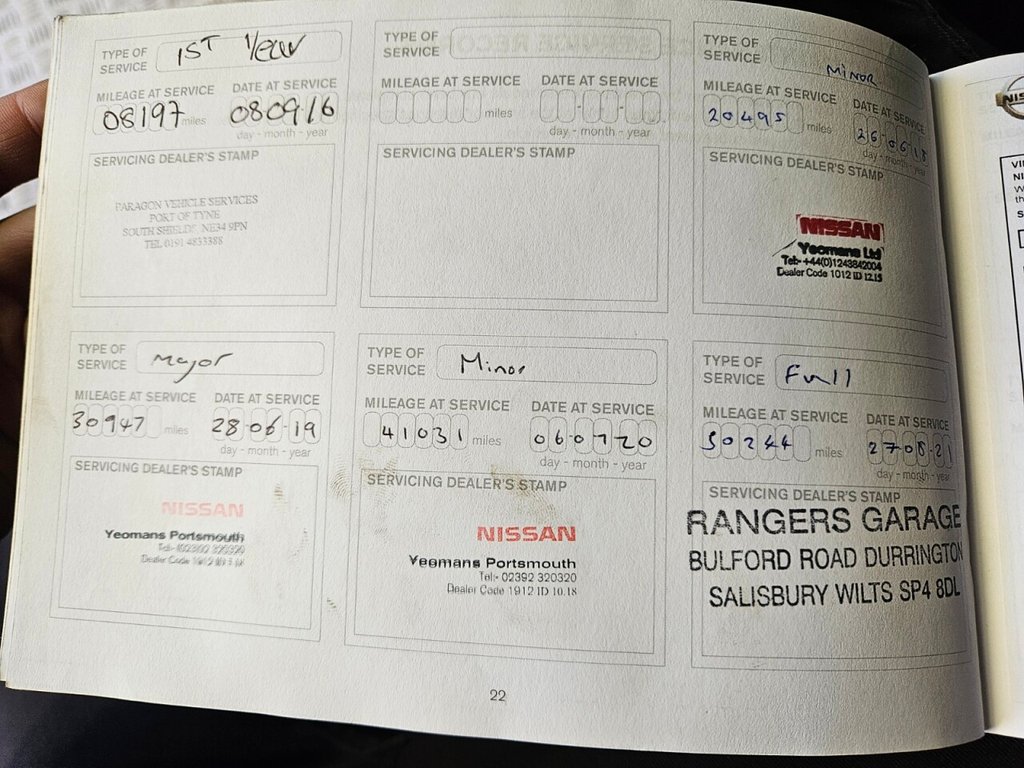 TYPE OF SERVICE 1ST Year
MILEAGE AT SERVICE DATE AT SERVICE
08197 miles 080916
day - month - year
SERVICING DEALER'S STAMP
PARAGON VEHICLE SERVICES
PORT OF TYNE
SOUTH SHIELDS NE34 9PN
TEL 0191 4833388
TYPE OF SERVICE
MILEAGE AT SERVICE DATE AT SERVICE
miles
day - month - year
SERVICING DEALER'S STAMP
TYPE OF SERVICE MINOR
MILEAGE AT SERVICE DATE AT SERVICE
20495 miles 260618
day - month - year
SERVICING DEALER'S STAMP
NISSAN
Yeomans Ltd
Tel:- +44(0)1243842004
Dealer Code 1012 ID 12.15
TYPE OF SERVICE Major
MILEAGE AT SERVICE DATE AT SERVICE
30947 miles 28-06-19
day - month - year
SERVICING DEALER'S STAMP
NISSAN
Yeomans Portsmouth
Tel:- 02392 320320
Dealer Code 1912 ID
TYPE OF SERVICE Minor
MILEAGE AT SERVICE DATE AT SERVICE
41031 miles 060720
day - month - year
SERVICING DEALER'S STAMP
NISSAN
Yeomans Portsmouth
Tel:- 02392 320320
Dealer Code 1912 ID 10.18
TYPE OF SERVICE Full
MILEAGE AT SERVICE DATE AT SERVICE
50244 miles 270821
day - month - year
SERVICING DEALER'S STAMP
RANGERS GARAGE
BULFORD ROAD DURRINGTON
SALISBURY WILTS SP4 8DL
22